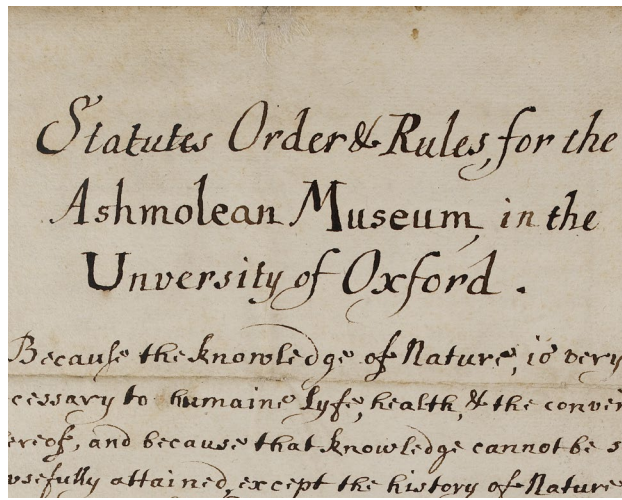 Statutes Order & Rules, for the
Ashmolean Museum, in the
Unversity of Oxford.
Because the knowledge of Nature, is very
cessary to humaine Lyfe, health, & the conven
ereof, and because that knowledge cannot be s
usefully attained, except the history of Nature